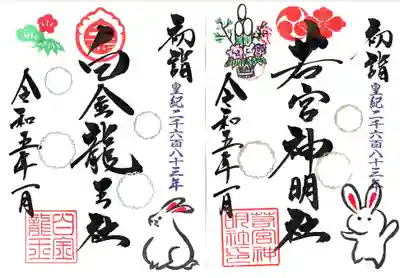 初詣
皇紀二千六百八十三年
白金龍王社
令和五年一月
白金
龍王
初詣
皇紀二千六百八十三年
若宮神明社
令和五年一月
若宮神
明社之